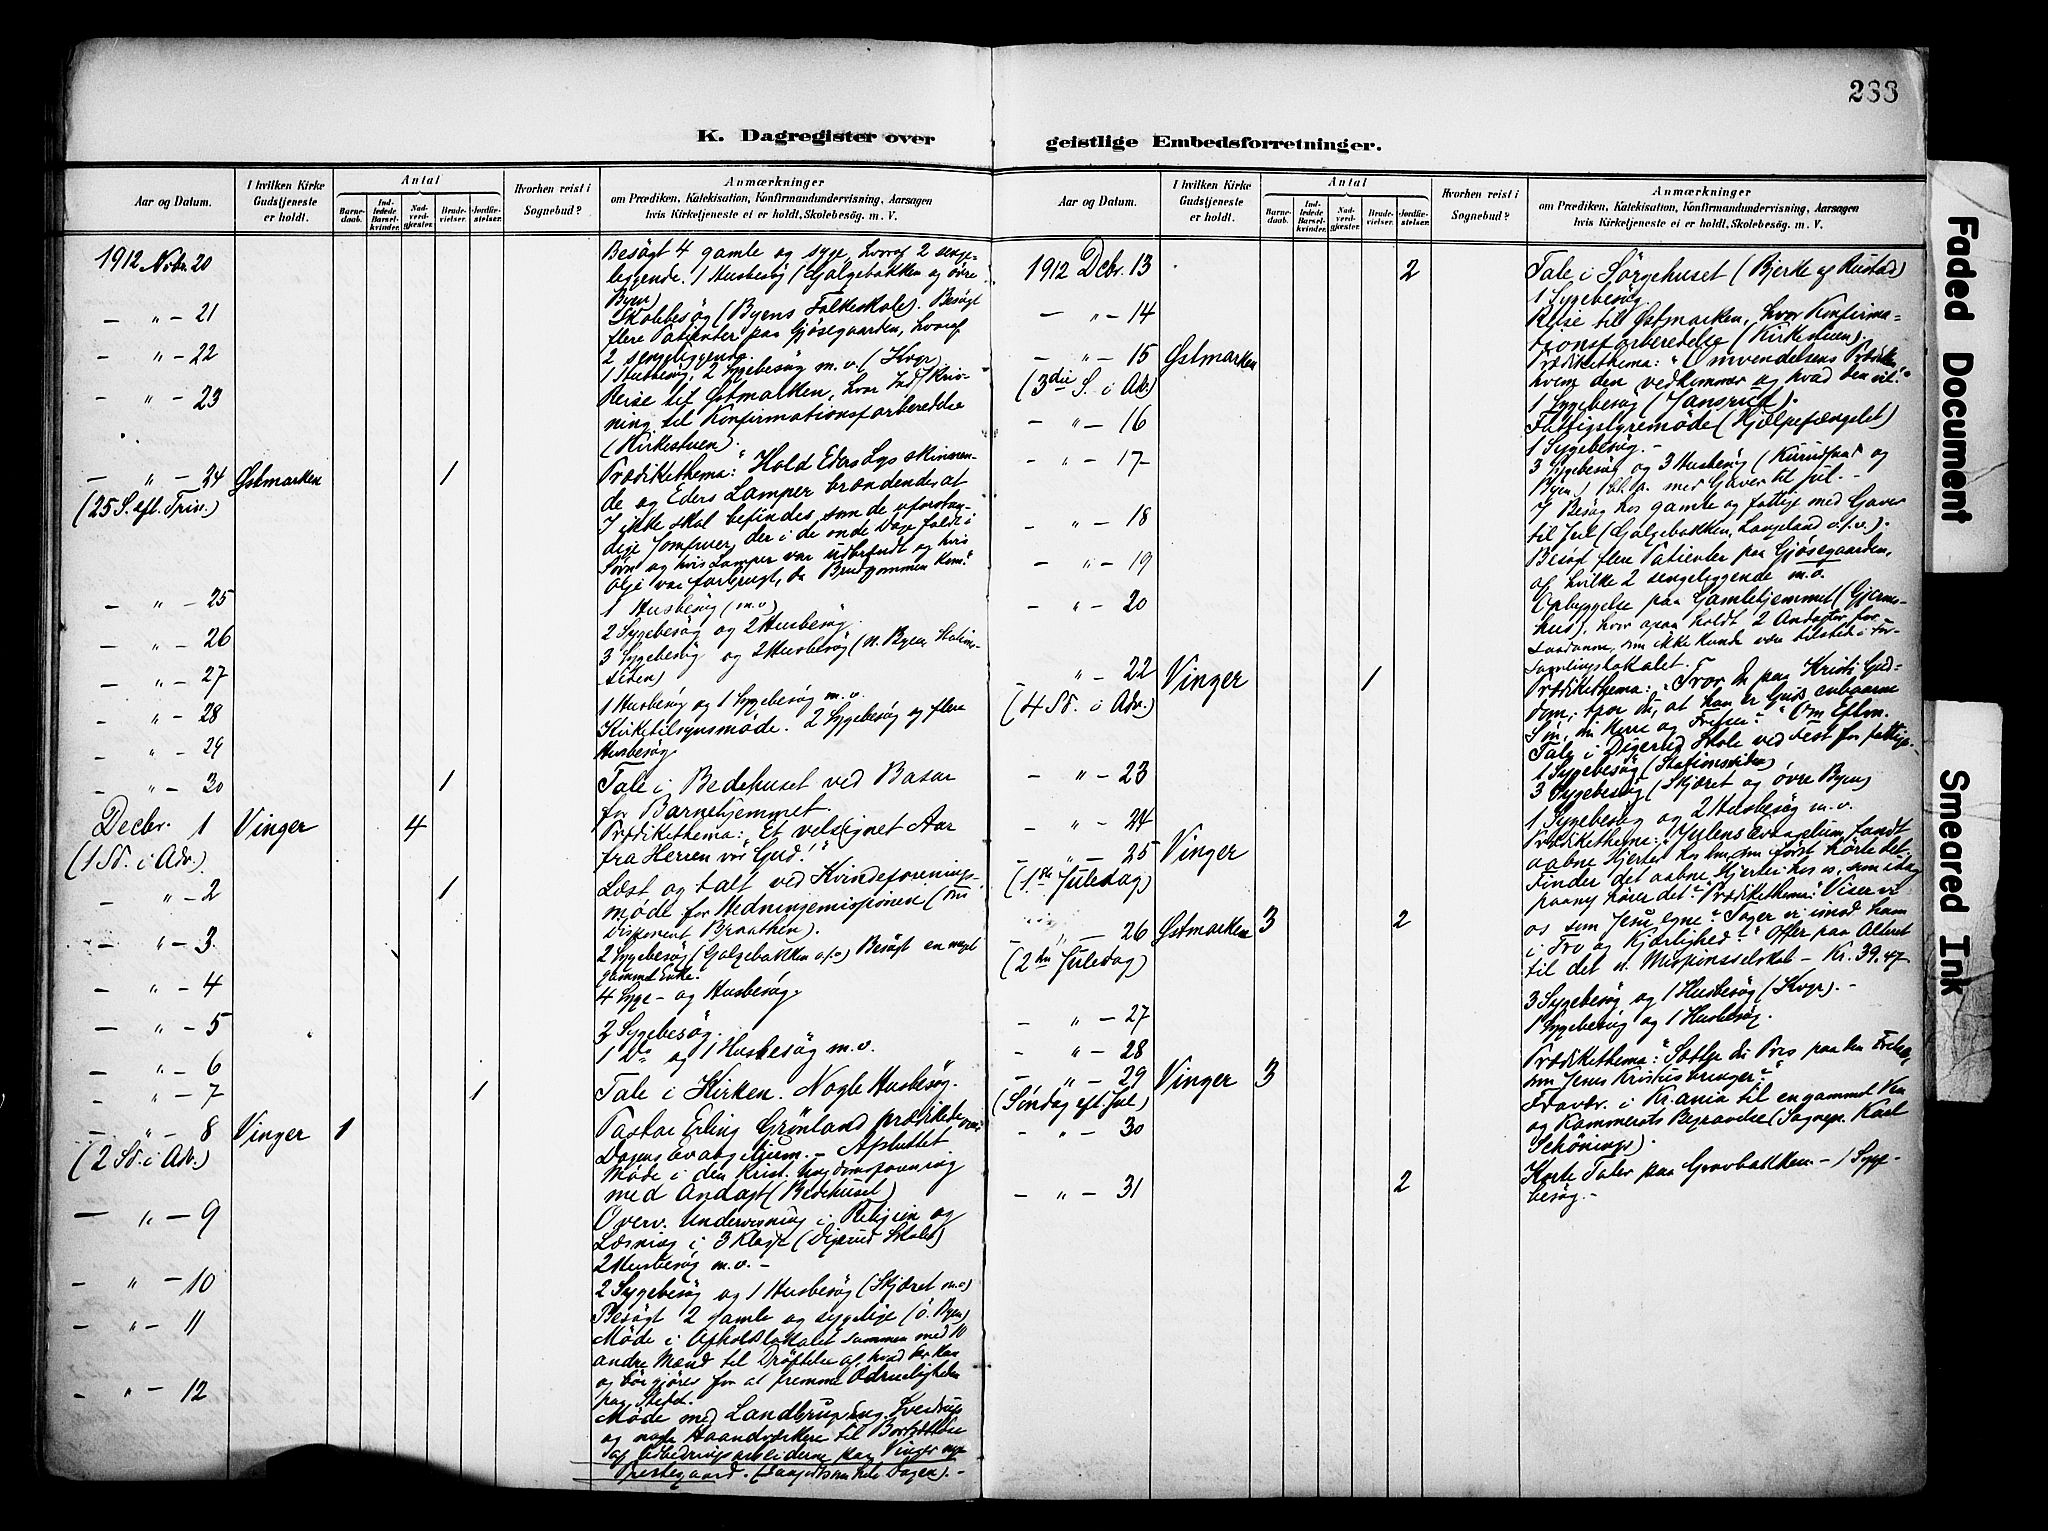 233
K. Dagregister over geistlige Embedsforretninger.
Aar og Datum.
I hvilken Kirke Gudstjeneste er holdt.
Antal
Barnedaab.
Indledede Barselkvinder.
Nadverdgjæster.
Brudevielser.
Jordfæstelser.
Hvorhen reist i Sognebud?
Anmærkninger
om Prædiken, Katekisation, Konfirmandundervisning, Aarsagen
hvis Kirketjeneste ei er holdt, Skolebesøg. m. V.
1912 Novbr. 20
Besøgt 4 gamle og syge, hvoraf 2 senge-
liggende. 1 Husbesøg (Galgebakken og øvre
Byen)
— " — 21
Skolebesøg (Byens Folkeskole). Besøgt
flere Patienter paa Gjøsegaarden, hvoraf
2 sengeliggende.
— " — 22
1 Husbesøg, 2 Sygebesøg m.v. (Kvgr)
— " — 23
Reise til Østmarken, hvor Indskriv-
ning til Konfirmationsforberedelse
(Kirkestuen).
— " — 24 Østmarken 1
(25 S. eft. Trin.)
Prædikethema: "Hold Eders Lys skinnen-
de og Eders Lamper brændendes at
I ikke skal befindes som de uforstan-
dige Jomfruer, der i de onde Dage faldt i
Søvn og hvis Lamper var udbrændt og hvis
Olje var forbrugt, da Brudgommen kom."
— " — 25
1 Husbesøg (m.v)
— " — 26
2 Sygebesøg og 2 Husbesøg.
— " — 27
3 Sygebesøg og 2 Husbesøg (n. Byen, Stations-
siden)
— " — 28
1 Husbesøg og 1 Sygebesøg m.v.
— " — 29
Kirketilsynsmøde. 2 Sygebesøg og flere
Husbesøg.
— " — 30 1
Tale i Bedehuset ved Basar
for Barnehjemmet.
Decbr. 1 Vinger 4
(1 S. i Adv.)
Prædikethema: "Et velsignet Aar
fra Herren vor Gud!"
— " — 2 1
Læst og talt ved Kvindeforenings-
møde for Hedningemissionen (Fru
Disponent Braathen).
— " — 3
2 Sygebesøg (Galgebakken o/v) Besøgt en meget
gammel Enke.
— " — 4
4 Syge- og Husbesøg.
— " — 5
2 Sygebesøg.
— " — 6
1 Do og 1 Husbesøg m.v.
— " — 7 1
Tale i Kirken. Nogle Husbesøg.
— " — 8 Vinger 1
(2 S. i Adv.)
Pastor Erling Grønland prædikede over
Dagens Evangelium. — Afsluttet
Møde i den Krist. Ungdomsforening
med Andagt (Bedehuset)
— " — 9
Overv. Undervisning i Religion og
Læsning i 3 Klasse (Digerud Skole)
2 Husbesøg m.v. —
— " — 10
2 Sygebesøg og 1 Husbesøg (Skjæret m.v)
— " — 11
Besøgt 2 gamle og sygelige (ö. Byen)
Møde i Afholdslokalet sammen med 10
andre Mænd til Drøftelse af, hvad der kan
og bør gjøres for at fremme Ædrueligheden
paa Stedet.
— " — 12
Møde med Landbrugsing. Sverdrup
og nogle Haandværkere til Bortsættelse
af Udbedringsarbeiderne paa Vinger
Prestegaard. (hele Dagen). —
Aar og Datum.
I hvilken Kirke Gudstjeneste er holdt.
Antal
Barnedaab.
Indledede Barselkvinder.
Nadverdgjæster.
Brudevielser.
Jordfæstelser.
Hvorhen reist i Sognebud?
Anmærkninger
om Prædiken, Katekisation, Konfirmandundervisning, Aarsagen
hvis Kirketjeneste ei er holdt, Skolebesøg. m. V.
1912 Decbr. 13 2
Tale i Sørgehuset (Bjerke og Rustad)
1 Sygebesøg.
— " — 14
Reise til Østmarken, hvor Konfirma-
tionsforberedelse (Kirkestuen).
— " — 15 Østmarken
(3die S. i Adv.)
Prædikethema: "Omvendelsens Prædiken
hvem den vedkommer og hvad den vil!"
1 Sygebesøg (Jansrud).
— " — 16
Fattigstyremøde (Hjælpefængslet)
1 Sygebesøg. —
— " — 17
3 Sygebesøg og 3 Husbesøg og
Byen) med Gaver til Jul. —
— " — 18
7 Besøg hos gamle og fattige med Gaver
til Jul (Galgebakken, Langeland o.s.v.).
— " — 19
Besøgt flere Patienter paa Gjøsegaarden,
af hvilke 2 sengeliggende m.v.
— " — 20
Opbyggelse paa Gamlehjemmet (Gjems-
hus), hvor ogsaa holdt 2 Andagter for
saadanne, som ikke kunde være tilstede i For-
samlingslokalet.
" — 22 Vinger 1
(4 S. i Adv.)
Prædikethema: "Tror du paa Kristi Gud-
dom; tror du, at han er Guds enbaarne
Søn, din Herre og Frelser?" Om Eftm.
Tale i Digerud Skole ved Fest for fattige.
— " — 23
1 Sygebesøg (Stationssiden)
3 Sygebesøg (Skjæret og øvre Byen)
— " — 24
1 Sygebesøg og 2 Husbesøg m.v.
— " — 25 Vinger
(1ste Juledag)
Prædikethema: "Julens Evangelium fandt
aabne Hjerter hos dem, som først hørte det.
Finder det aabne Hjerter hos os, som idag
paany hører det?"
— " — 26 Østmarken 3 2
(2den Juledag)
Prædikethema: "Viser vi
os som Jesu egne? Tager vi imod ham
i Tro og Kjærlighed?" Offer paa Alteret
til det n. Missionsselskab — Kr. 39.47
— " — 27
3 Sygebesøg og 1 Husbesøg (Kvgr). —
— " — 28
1 Sygebesøg og 1 Husbesøg.
— " — 29 Vinger 3
(Søndag eft. Jul)
Prædikethema: "Sætter du Pris paa den Frelse,
som Jesus Kristus bringer?"
— " — 30
Fravær. i Kr.ania til en gammel Ven
og Kammerats Begravelse (Sognepr. Karl
Schönings).
— " — 31 2
Korte Taler paa Gravbakken. — 1 Syge-
besøg. —
Faded Document
Smeared Ink